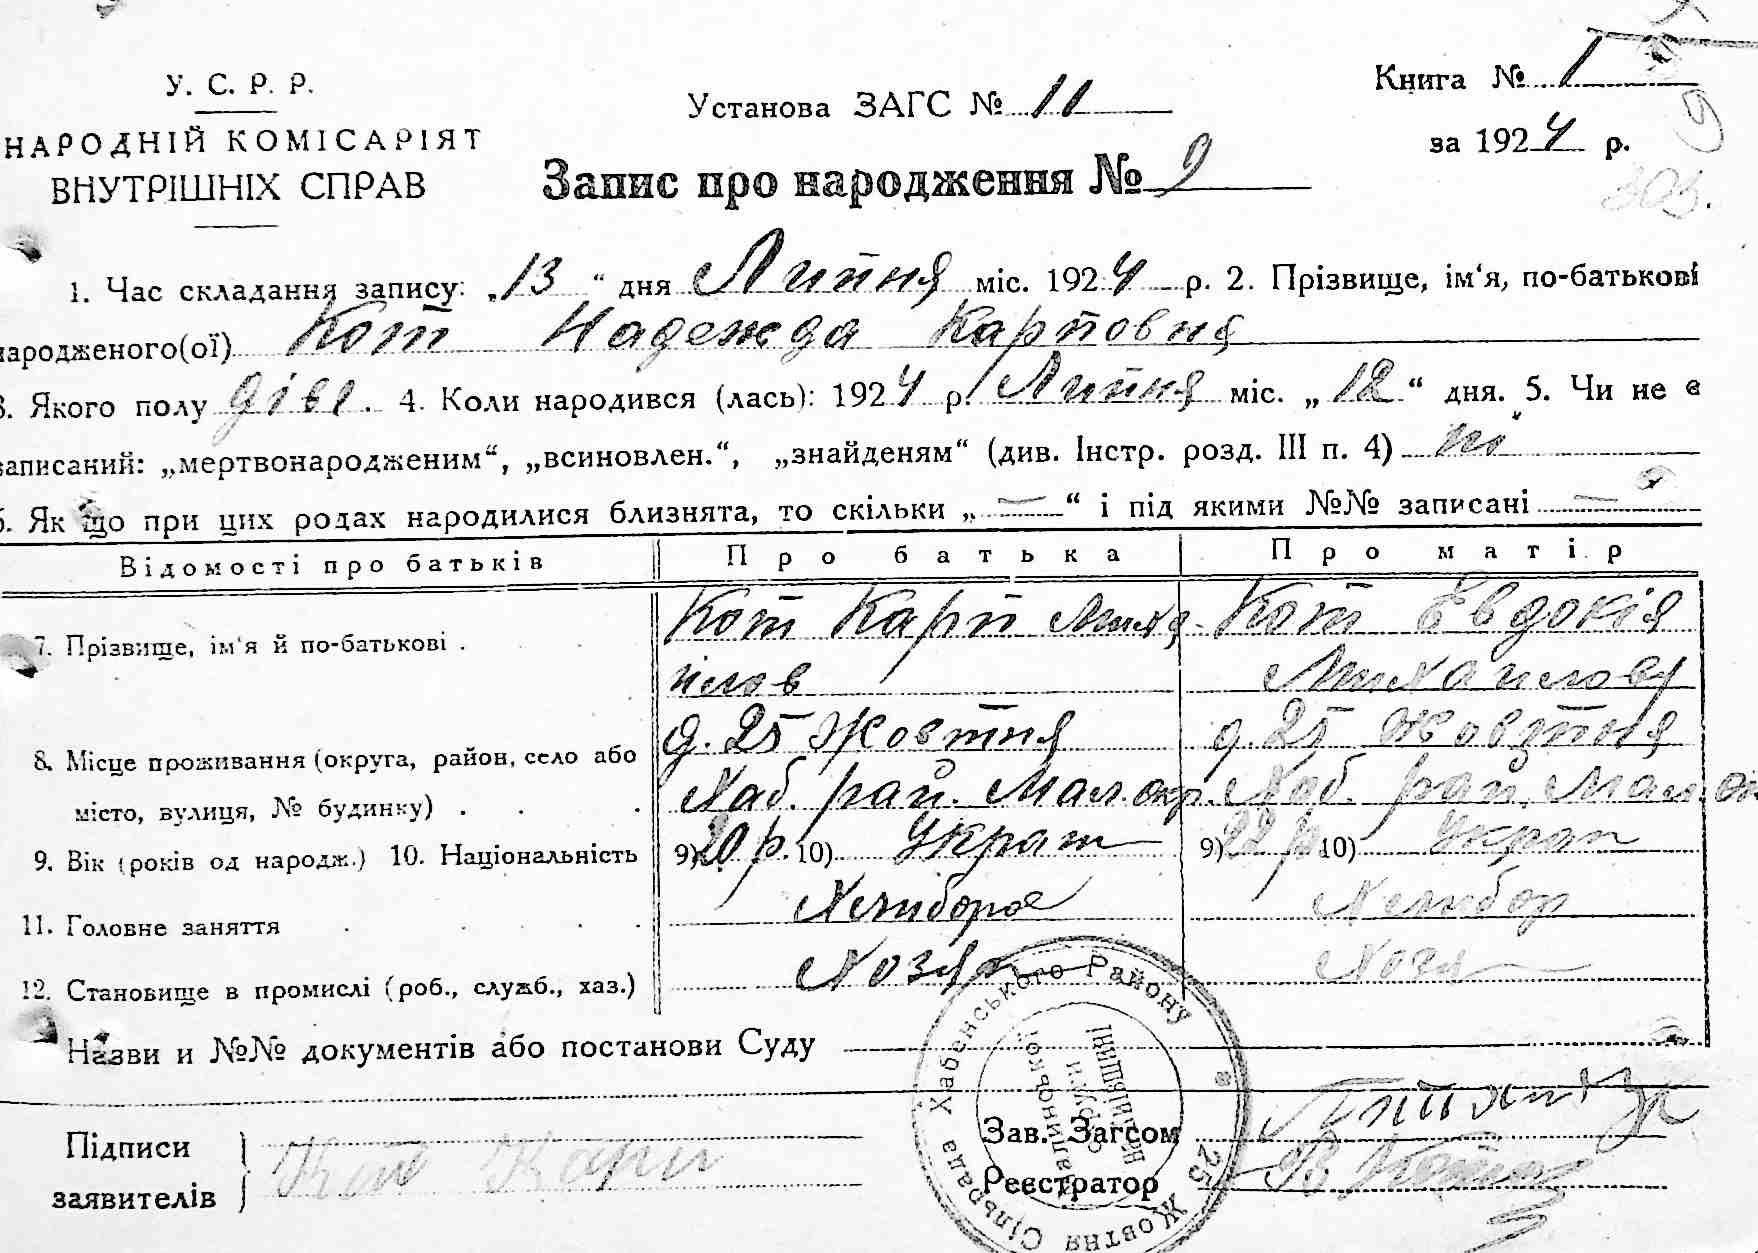 У. С. Р. Р.
НАРОДНІЙ КОМІСАРІЯТ
ВНУТРІШНІХ СПРАВ
Установа ЗАГС № 11
Книга № 1
за 1924 р.
9
303.
Запис про народження № 9
1. Час складання запису: „13“ дня Липня міс. 1924 р. 2. Прізвище, ім‘я, по-батькові
народженого(ої) Кот Надежда Карповня
3. Якого полу дівч. 4. Коли народився (лась): 1924 р. Липня міс. „12“ дня. 5. Чи не є
записаний: „мертвонародженим“, „всиновлен.“, „знайденям“ (див. Інстр. розд. III п. 4) ні
6. Як що при цих родах народилися близнята, то скільки „ — “ і під якими №№ записані —
Відомості про батьків
Про батька
Про матір
7. Прізвище, ім‘я й по-батькові .
Кот Карп Миха-
йлов
Кот Евдокія
Михайлову
8. Місце проживання (округа, район, село або
місто, вулиця, № будинку) .
д. 25 Жовтня
Хаб. рай. Мал. окр.
д. 25 Жовтня
Хаб. рай. Мал. ок
9. Вік (років од народж.) 10. Національність
9) 20 р. 10) Украт
9) 22 р 10) Украп
11. Головне заняття
Хлиборов
Хлибор
12. Становище в промислі (роб., служб., хаз.)
Хозя
Хозя
Назви и №№ документів або постанови Суду
Підписи
заявителів
Кот Карп
Зав. Загсом
Реєстратор
Сільрада Хабенського Району 25 Жовтня